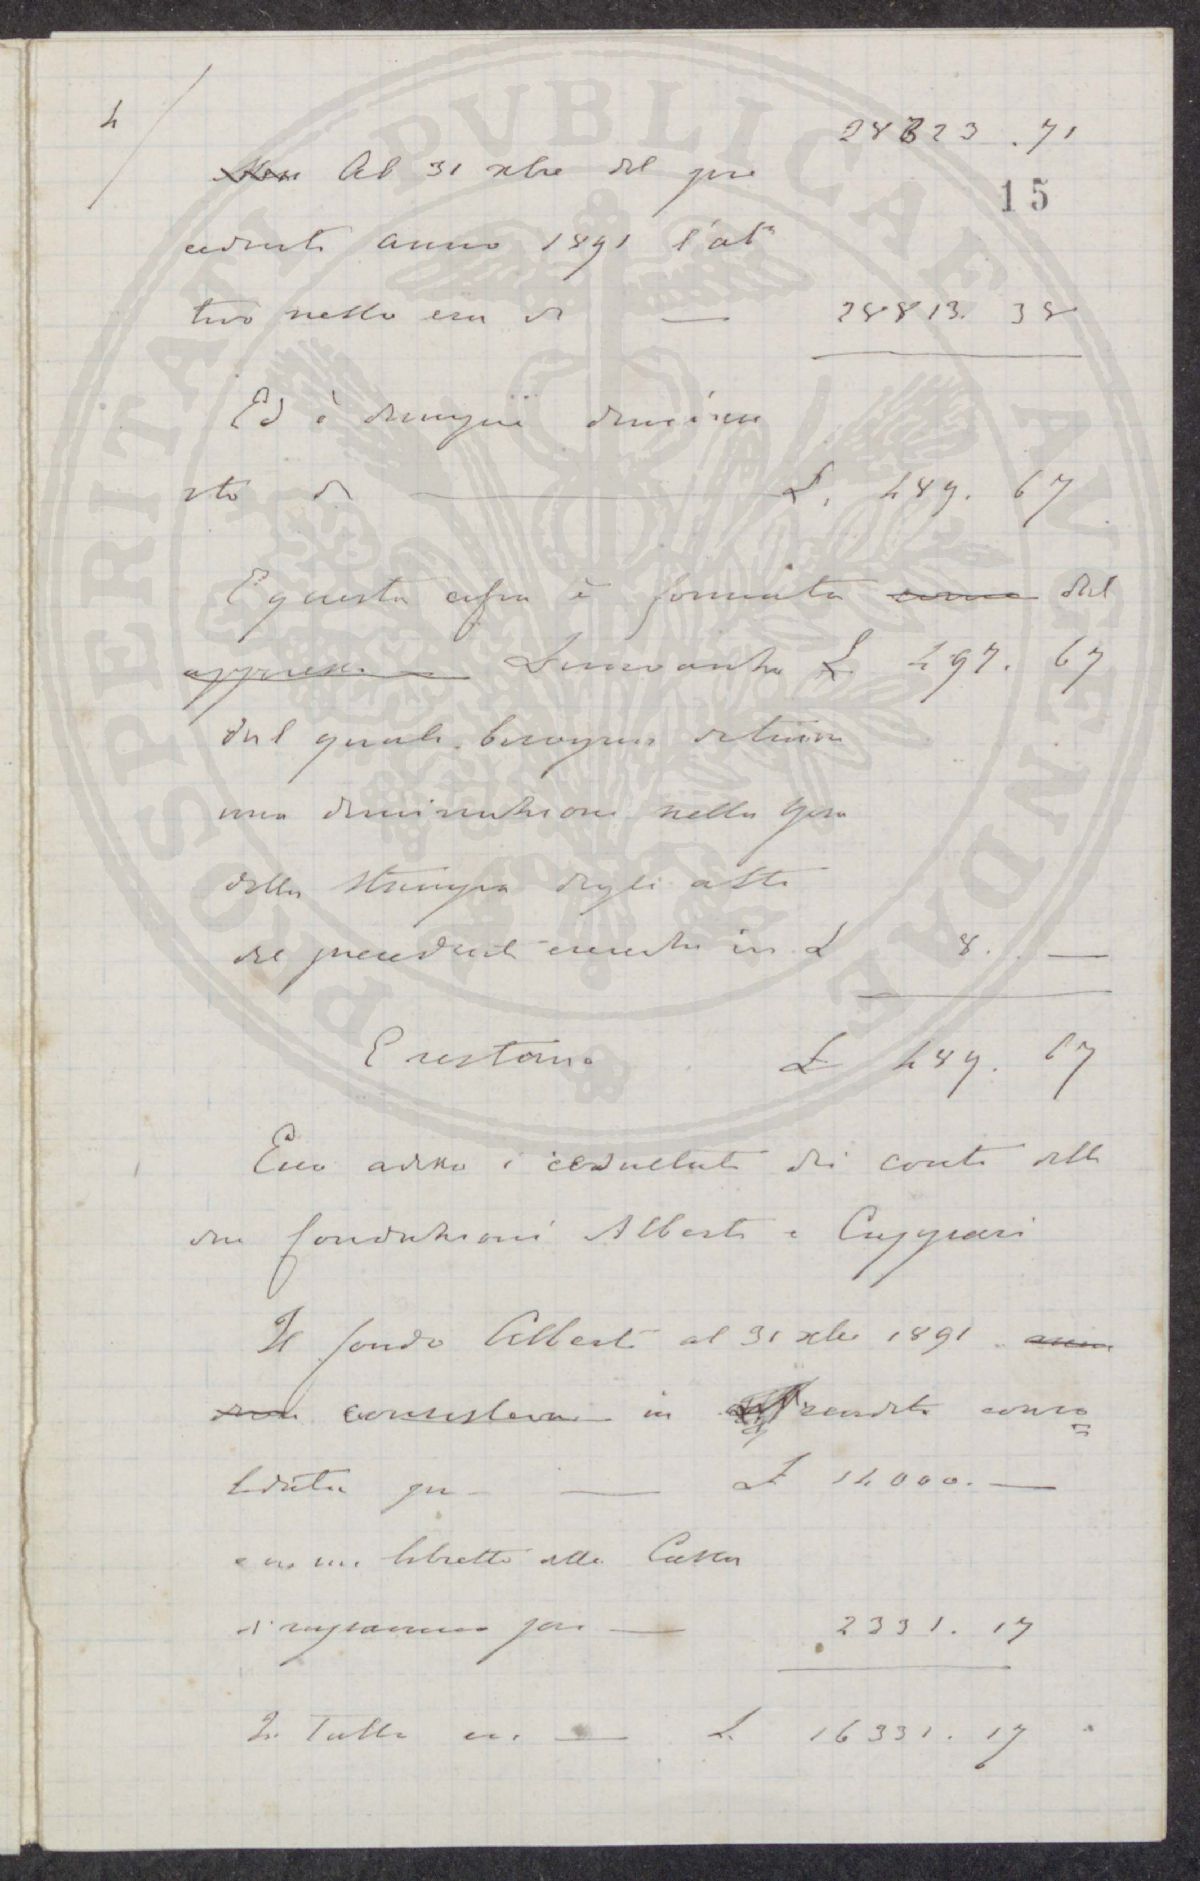 4
28323 . 71
Al 31 xbre del pre
15
cedente anno 1891 l'at
tivo netto era di — 28813. 38
Ed è dunque diminui
to di — L. 489. 67
E questa cifra è formata come del
appresso Disavanzo L 497. 67
dal quale bisogna detrarre
una diminuzione nella spesa
della stampa degli atti
del precedente esercizio in L 8. —
E restano L 489. 67
Ecco adesso i resultati dei conti delle
due fondazioni Alberti e Cuppari
Il fondo Alberti al 31 xbre 1891
consisteva in rendita conso
lidata per — L 14000. —
e in un libretto della Cassa
di risparmio per — 2331. 17
In tutto in — L. 16331. 17
PROSPERITATI PVBLICAE AVGENDAE